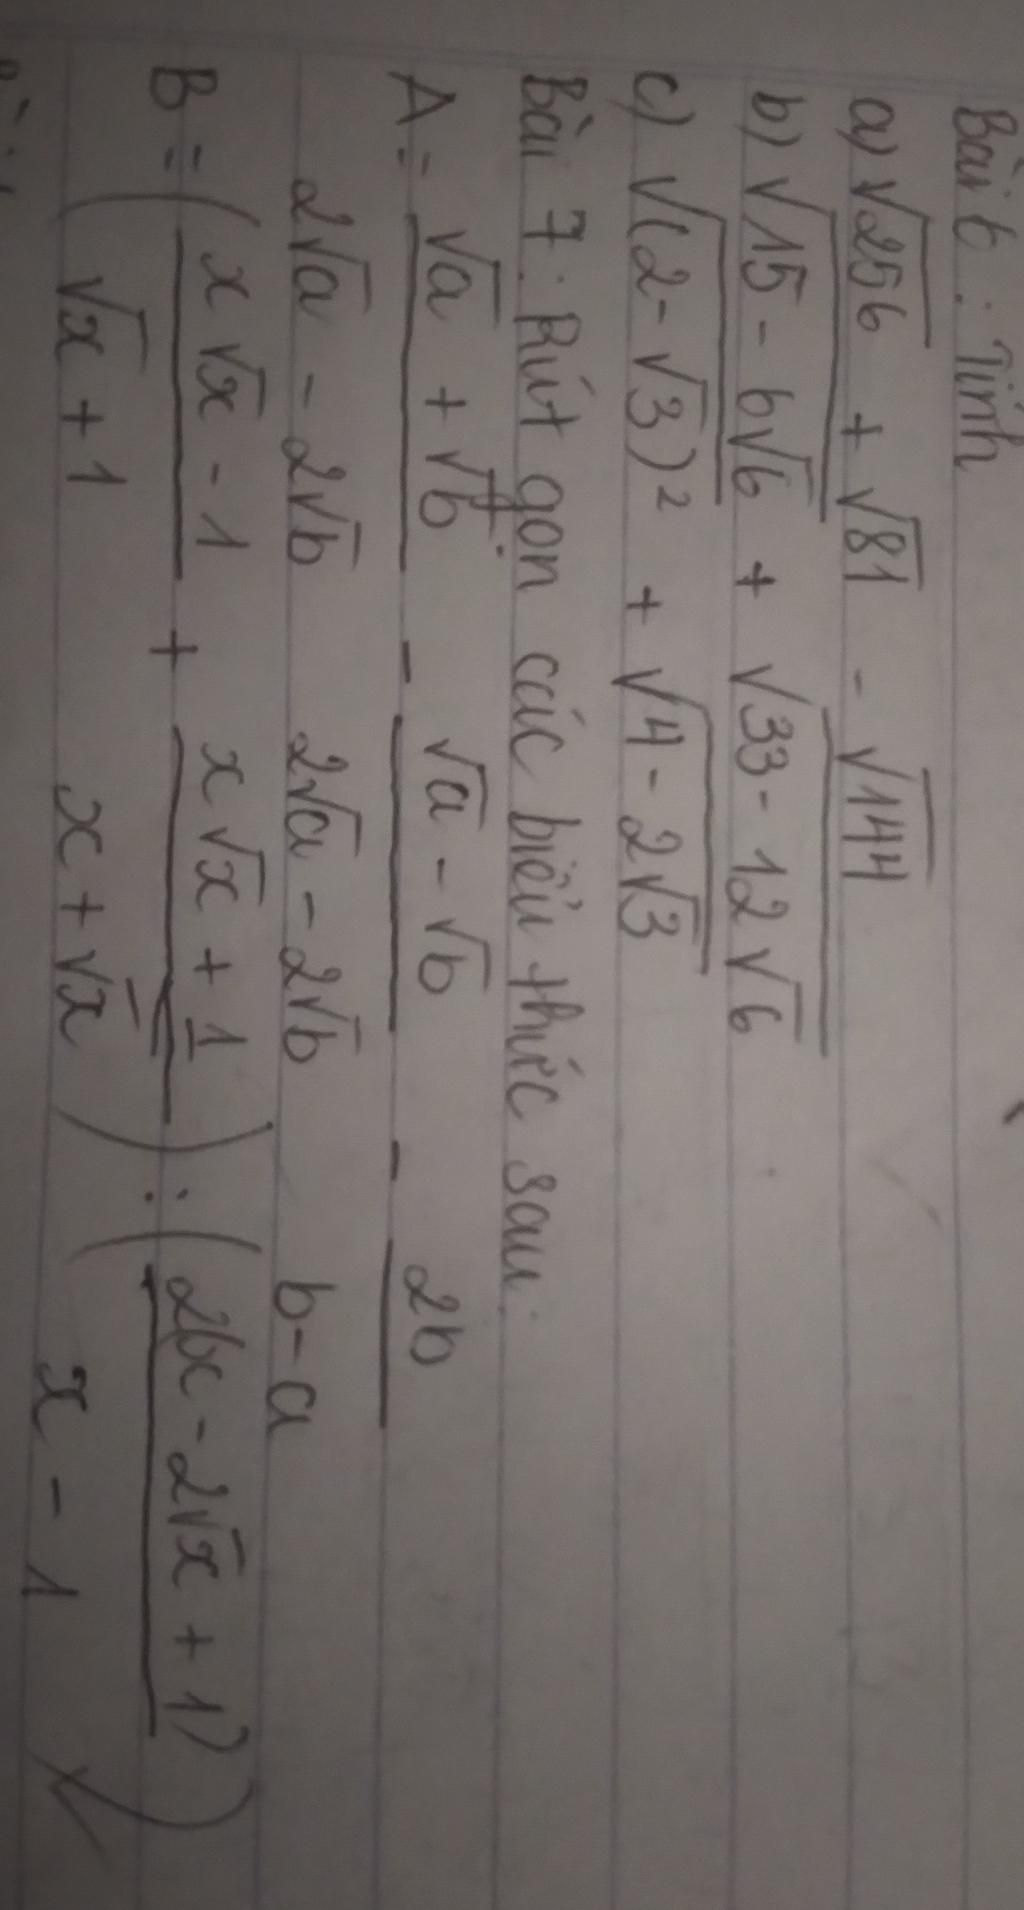 Bài 6: Tính
a) √256 + √81 - √144
b) √15 - 6√6 + √33 - 12√6
c) √(2 - √3)² + √4 - 2√3
Bài 7: Rút gọn các biểu thức sau:
A = (√a + √b)/(2√a - 2√b) - (√a - √b)/(2√a - 2√b) - 2b/(b - a)
B = ((x√x - 1)/(√x + 1) + (x√x + 1)/(x + √x)) : ((2(x - 2√x + 1))/(x - 1))